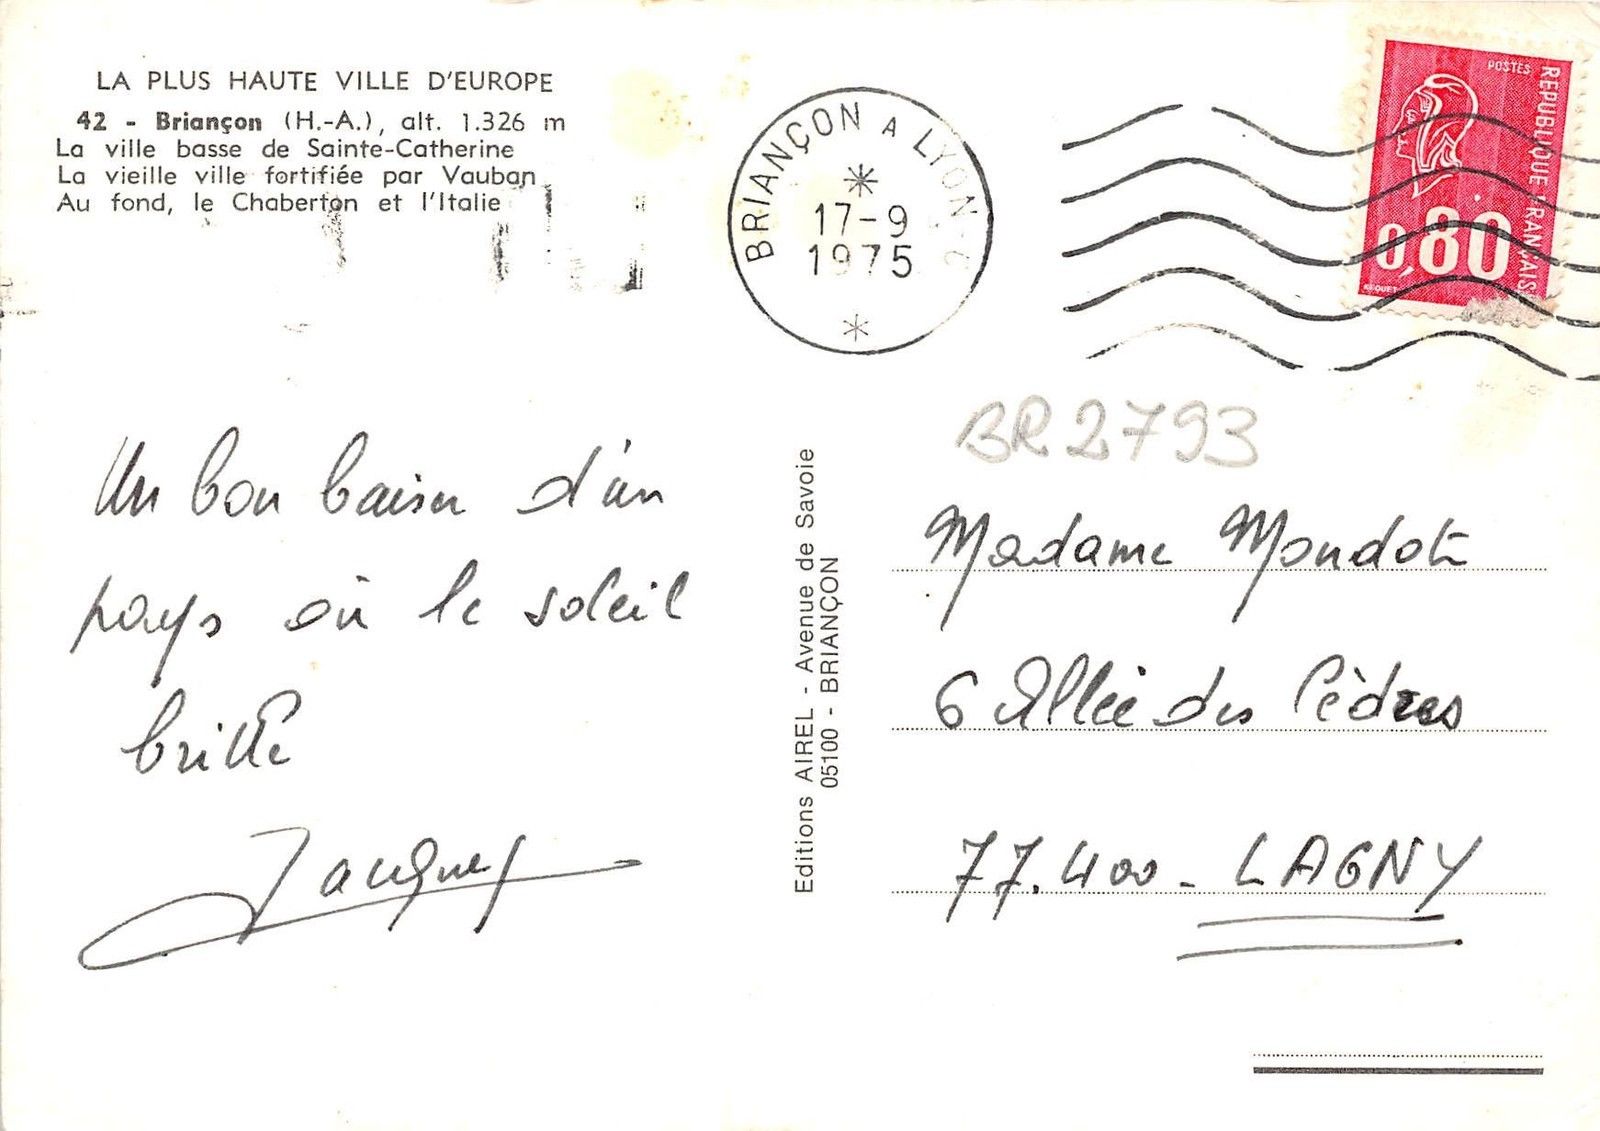 LA PLUS HAUTE VILLE D'EUROPE
42 - Briançon (H.-A.), alt. 1.326 m
La ville basse de Sainte-Catherine
La vieille ville fortifiée par Vauban
Au fond, le Chaberton et l'Italie
BRIANÇON A LYON
17-9
1975
POSTES
REPUBLIQUE FRANÇAISE
0,80
BR2793
Un bon baiser d'un
pays où le soleil
brille
Jacques
Editions AIREL - Avenue de Savoie
05100 - BRIANÇON
Madame Mondot
6 Allée des Cèdres
77.400 - LAGNY